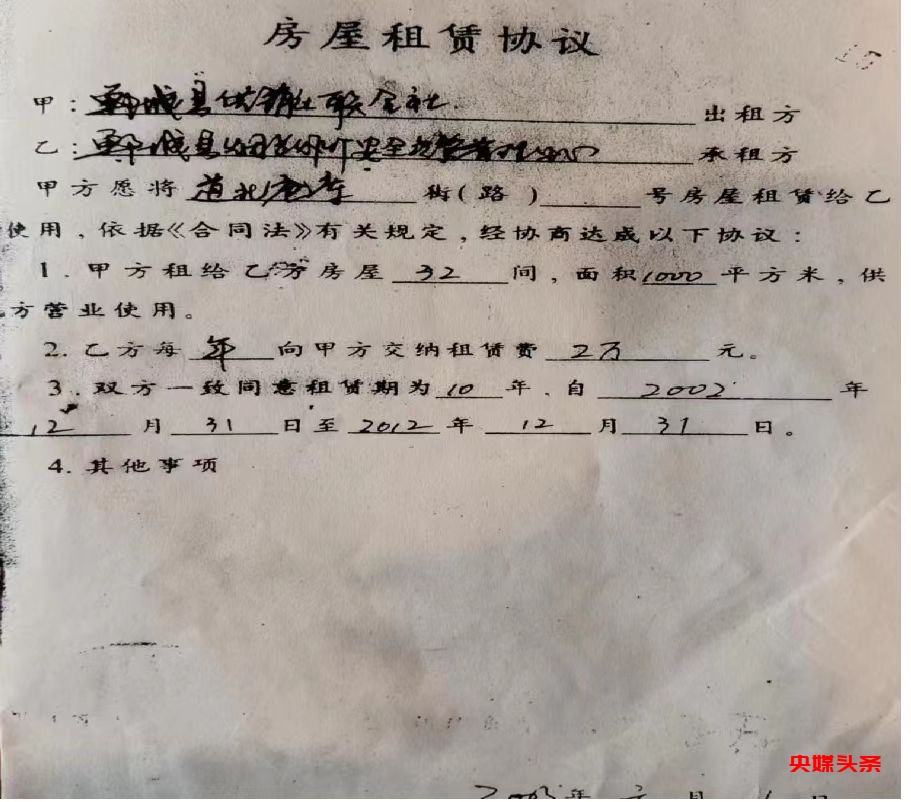 房屋租赁协议
甲：郸城县供销社联合社 出租方
乙：郸城县 安全 管理 承租方
甲方愿将道北 街（路）号房屋租赁给乙
使用，依据《合同法》有关规定，经协商达成以下协议：
1．甲方租给乙方房屋 32 间，面积1000平方米，供
方营业使用。
2．乙方每年向甲方交纳租赁费 2万 元。
3．双方一致同意租赁期为10年、自 2002 年
12 月 31 日至 2012 年 12 月 31 日。
4．其他事项
2003年 元 月
央媒头条